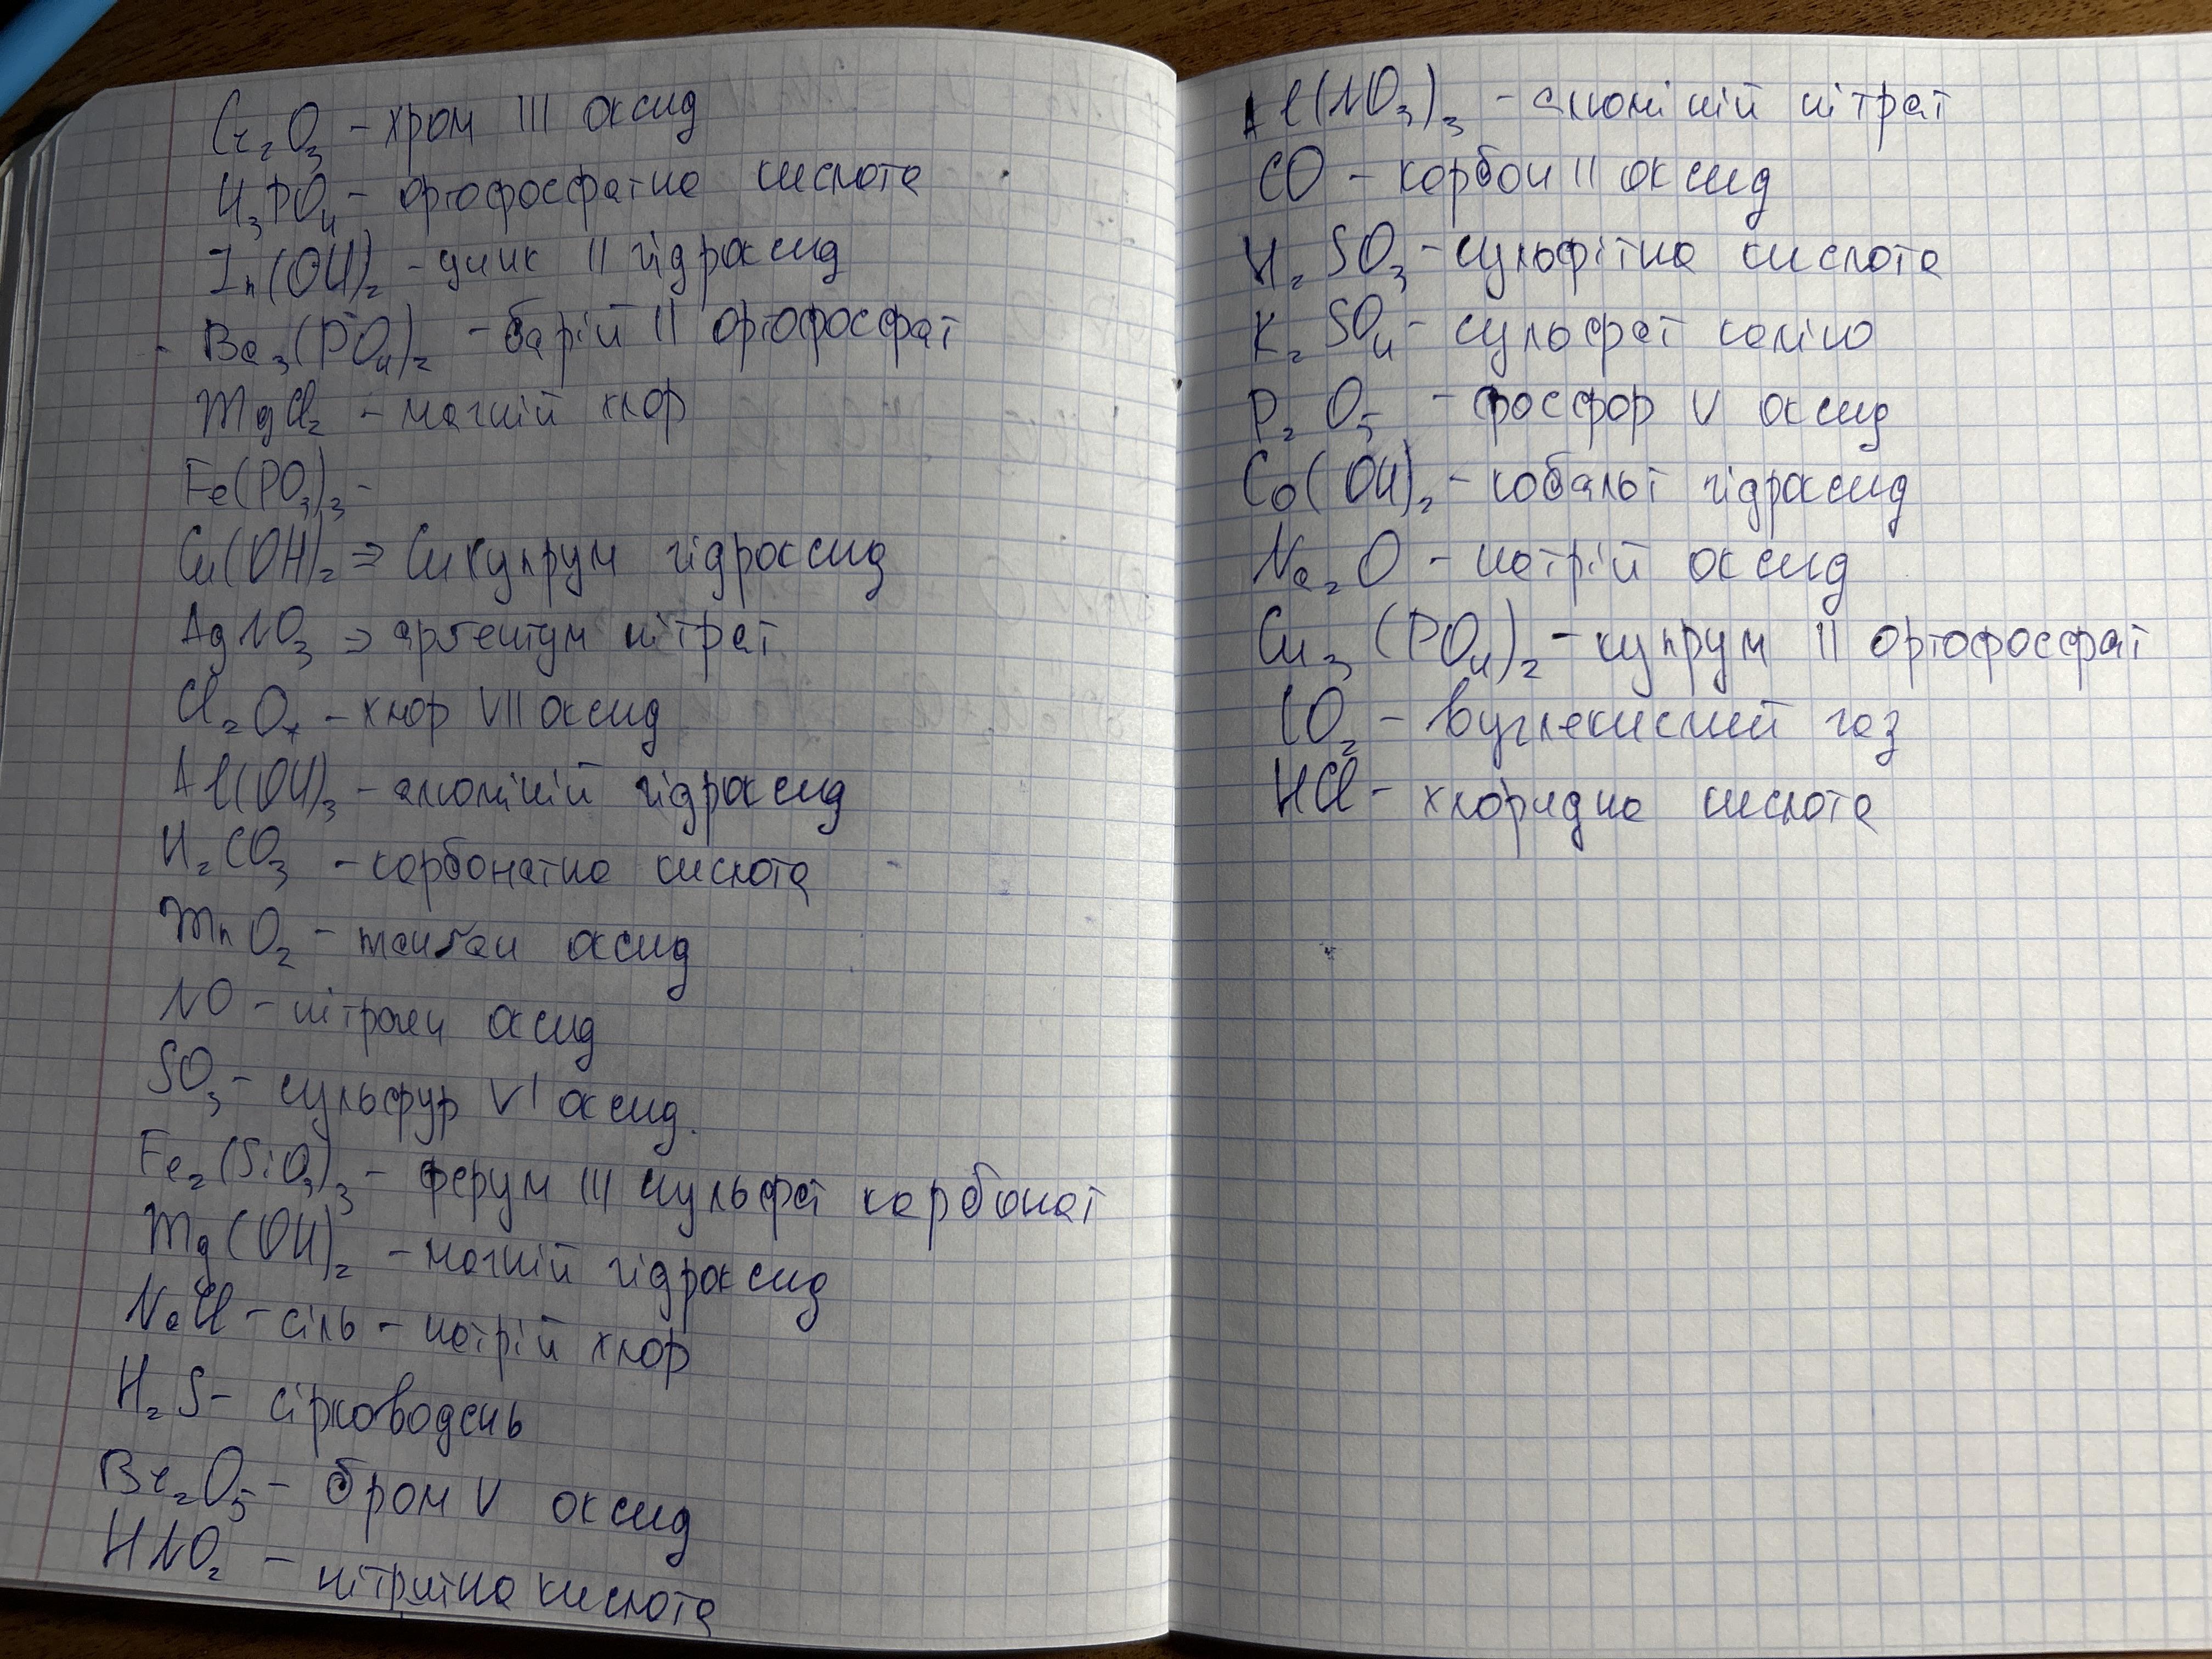 Cr₂O₃ - хром III оксид
H₃PO₄ - ортофосфатна кислота
Zn(OH)₂ - цинк II гідроксид
Ba₃(PO₄)₂ - барій II ортофосфат
MgCl₂ - магній хлор
Fe(PO₃)₃ -
Cu(OH)₂ ⇒ Cu купрум гідроксид
AgNO₃ ⇒ аргентум нітрат
Cl₂O₇ - хлор VII оксид
Al(OH)₃ - алюміній гідроксид
H₂CO₃ - карбонатна кислота
MnO₂ - манган оксид
NO - нітроген оксид
SO₃ - сульфур VI оксид.
Fe₂(SiO₃)₃ - ферум III сульфат карбонат
Mg(OH)₂ - магній гідроксид
NaCl - сіль - натрій хлор
H₂S - сірководень
Br₂O₅ - бром V оксид
HNO₂ - нітритна кислота
Al(NO₃)₃ - алюміній нітрат
CO - карбон II оксид
H₂SO₃ - сульфітна кислота
K₂SO₄ - сульфат калію
P₂O₅ - фосфор V оксид
Co(OH)₂ - кобальт гідроксид
Na₂O - натрій оксид
Cu₃(PO₄)₂ - купрум II ортофосфат
CO₂ - вуглекислий газ
HCl - хлоридна кислота